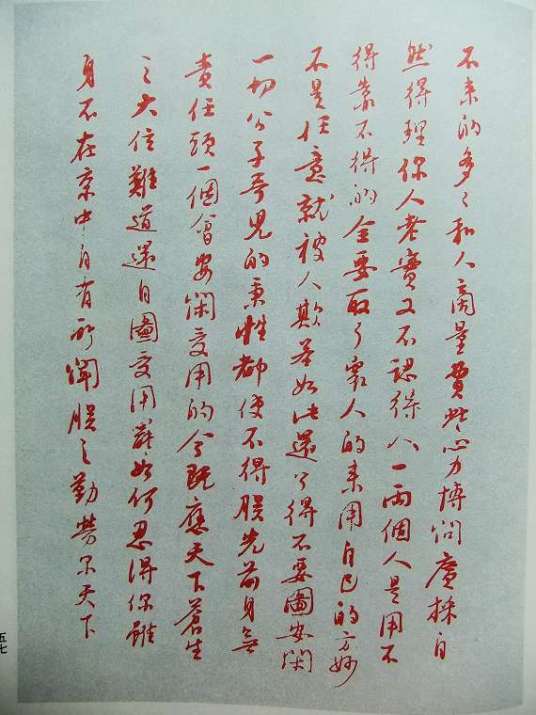 不来的多々和人商量費些心力博問廣採自
然得理你人老實又不認得人一兩個人是用不
得靠不得的全要取了衆人的来用自己的方妙
不是任意就被人欺若如此還了得不要圖安閑
一切公子哥兒的秉性都使不得朕先前身無
責任頭一個會安閑受用的今既應天下蒼生
之大位難道還自圖受用尔如何忍得你雖
身不在京中自有所聞朕之勤勞尔天下
五七